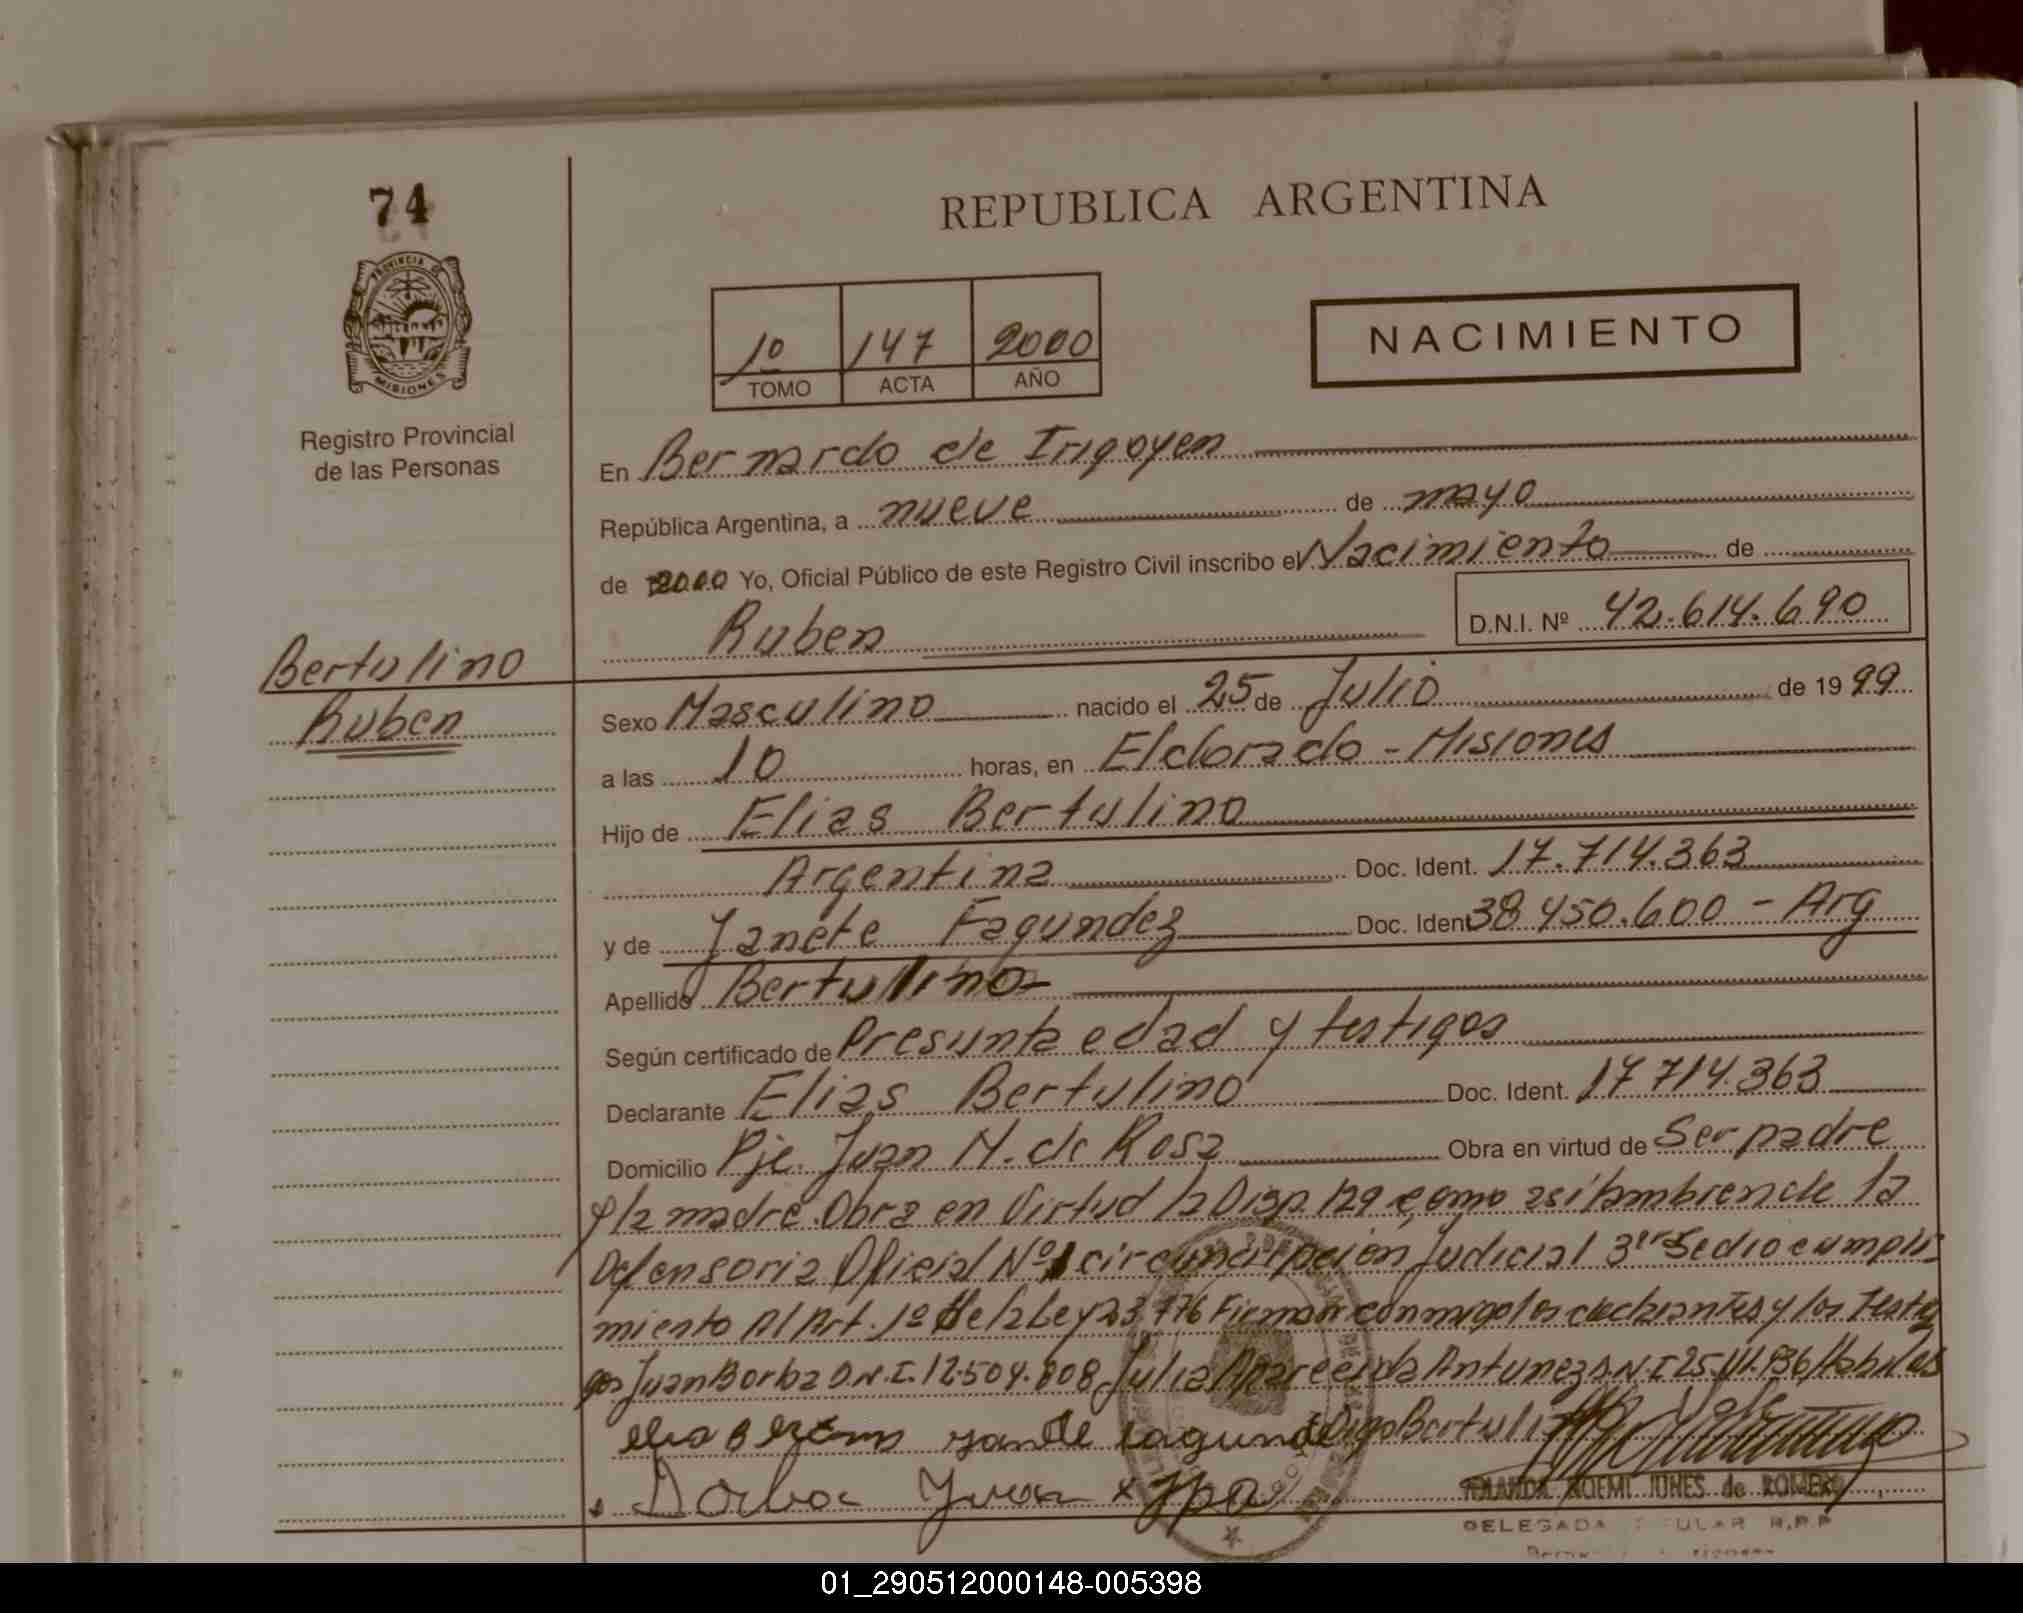 74
REPUBLICA ARGENTINA
PROVINCIA DE
MISIONES
Registro Provincial
de las Personas
1º 147 2000
TOMO ACTA AÑO
NACIMIENTO
En Bernardo de Irigoyen
República Argentina, a nueve de mayo
de 2000 Yo, Oficial Público de este Registro Civil inscribo el Nacimiento de
Ruben D.N.I. Nº 42.614.690
Bertulino
Ruben
Sexo Masculino nacido el 25 de Julio de 1999
a las 10 horas, en Eldorado - Misiones
Hijo de Elias Bertulino
Argentina Doc. Ident. 17.714.363
y de Janete Fagundez Doc. Ident 38450.600 - Arg
Apellido Bertulino
Según certificado de Presunta edad y testigos
Declarante Elias Bertulino Doc. Ident. 17714.363
Domicilio Pje. Juan M. de Rosa Obra en virtud de Ser padre
y la madre. Obra en Virtud la Disp. 129 como asi tambien de la
Defensoria Oficial Nº 1 circunscripcion Judicial 3er Se dio cumpli
miento Al Art. 1º de la Ley 23.776 Firman conmigo los declarantes y los testi
gos Juan Borba D.N.I. 12.504.808 Julia Aparecida Antunez D.N.I 25. Habiles
Digo Bertulino
Borba Juan x
YOLANDA NOEMI JUNES de ROMERO
DELEGADA TITULAR R.P.P
01_290512000148-005398